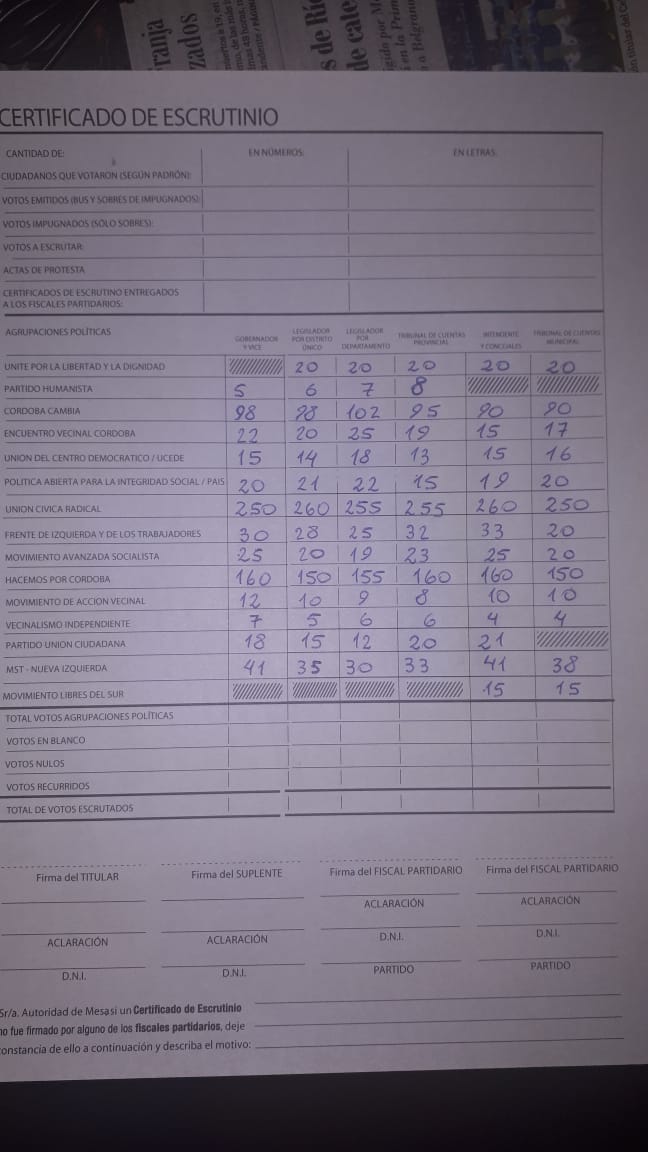 ranja
zados
s de Rí
de cate
CERTIFICADO DE ESCRUTINIO
CANTIDAD DE: EN NÚMEROS: EN LETRAS:
CIUDADANOS QUE VOTARON (SEGÚN PADRÓN):
VOTOS EMITIDOS (BUS Y SOBRES DE IMPUGNADOS):
VOTOS IMPUGNADOS (SÓLO SOBRES):
VOTOS A ESCRUTAR:
ACTAS DE PROTESTA
CERTIFICADOS DE ESCRUTINO ENTREGADOS
A LOS FISCALES PARTIDARIOS:
AGRUPACIONES POLÍTICAS GOBERNADOR Y VICE LEGISLADOR POR DISTRITO ÚNICO LEGISLADOR POR DEPARTAMENTO TRIBUNAL DE CUENTAS PROVINCIAL INTENDENTE Y CONCEJALES TRIBUNAL DE CUENTAS MUNICIPAL
UNITE POR LA LIBERTAD Y LA DIGNIDAD 20 20 20 20 20
PARTIDO HUMANISTA 5 6 7 8
CORDOBA CAMBIA 98 98 102 95 90 90
ENCUENTRO VECINAL CORDOBA 22 20 25 19 15 17
UNION DEL CENTRO DEMOCRATICO / UCEDE 15 14 18 13 15 16
POLITICA ABIERTA PARA LA INTEGRIDAD SOCIAL / PAIS 20 21 22 15 19 20
UNION CIVICA RADICAL 250 260 255 255 260 250
FRENTE DE IZQUIERDA Y DE LOS TRABAJADORES 30 28 25 32 33 20
MOVIMIENTO AVANZADA SOCIALISTA 25 20 19 23 25 20
HACEMOS POR CORDOBA 160 150 155 160 160 150
MOVIMIENTO DE ACCION VECINAL 12 10 9 8 10 10
VECINALISMO INDEPENDIENTE 7 5 6 6 4 4
PARTIDO UNION CIUDADANA 18 15 12 20 21
MST - NUEVA IZQUIERDA 41 35 30 33 41 38
MOVIMIENTO LIBRES DEL SUR 15 15
TOTAL VOTOS AGRUPACIONES POLÍTICAS
VOTOS EN BLANCO
VOTOS NULOS
VOTOS RECURRIDOS
TOTAL DE VOTOS ESCRUTADOS
Firma del TITULAR Firma del SUPLENTE Firma del FISCAL PARTIDARIO Firma del FISCAL PARTIDARIO
ACLARACIÓN ACLARACIÓN
ACLARACIÓN ACLARACIÓN D.N.I. D.N.I.
D.N.I. D.N.I. PARTIDO PARTIDO
Sr/a. Autoridad de Mesa: si un Certificado de Escrutinio
no fue firmado por alguno de los fiscales partidarios, deje
constancia de ello a continuación y describa el motivo: